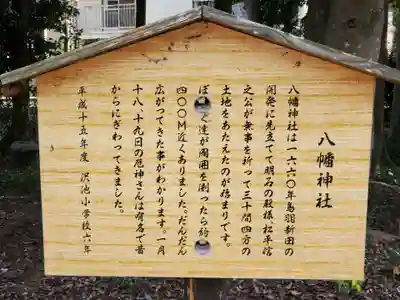 八幡神社
八幡神社は一六六〇年鳥羽新田の
開発に先立って明石の殿様、松平信
之公が無事を祈って三十間四方の
土地をあたえたのが始まりです。
ぼくたちが周囲を測ったら約
四〇〇M近くありました。だんだん
広がってきた事がわかります。一月
十八、十九日の厄神さんは有名で昔
からにぎわってきました。
平成十五年度 沢池小学校六年